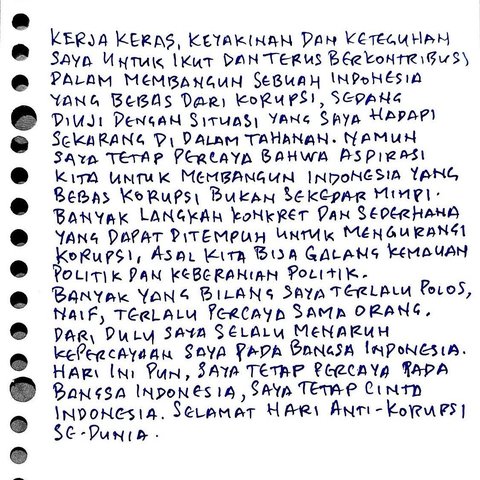 KERJA KERAS, KEYAKINAN DAN KETEGUHAN
SAYA UNTUK IKUT DAN TERUS BERKONTRIBUSI
DALAM MEMBANGUN SEBUAH INDONESIA
YANG BEBAS DARI KORUPSI, SEDANG
DIUJI DENGAN SITUASI YANG SAYA HADAPI
SEKARANG DI DALAM TAHANAN. NAMUN
SAYA TETAP PERCAYA BAHWA ASPIRASI
KITA UNTUK MEMBANGUN INDONESIA YANG
BEBAS KORUPSI BUKAN SEKEDAR MIMPI.
BANYAK LANGKAH KONKRET DAN SEDERHANA
YANG DAPAT DITEMPUH UNTUK MENGURANGI
KORUPSI, ASAL KITA BISA GALANG KEMAUAN
POLITIK DAN KEBERANIAN POLITIK.
BANYAK YANG BILANG SAYA TERLALU POLOS,
NAIF, TERLALU PERCAYA SAMA ORANG.
DARI DULU SAYA SELALU MENARUH
KEPERCAYAAN SAYA PADA BANGSA INDONESIA.
HARI INI PUN, SAYA TETAP PERCAYA PADA
BANGSA INDONESIA, SAYA TETAP CINTA
INDONESIA. SELAMAT HARI ANTI-KORUPSI
SE-DUNIA.